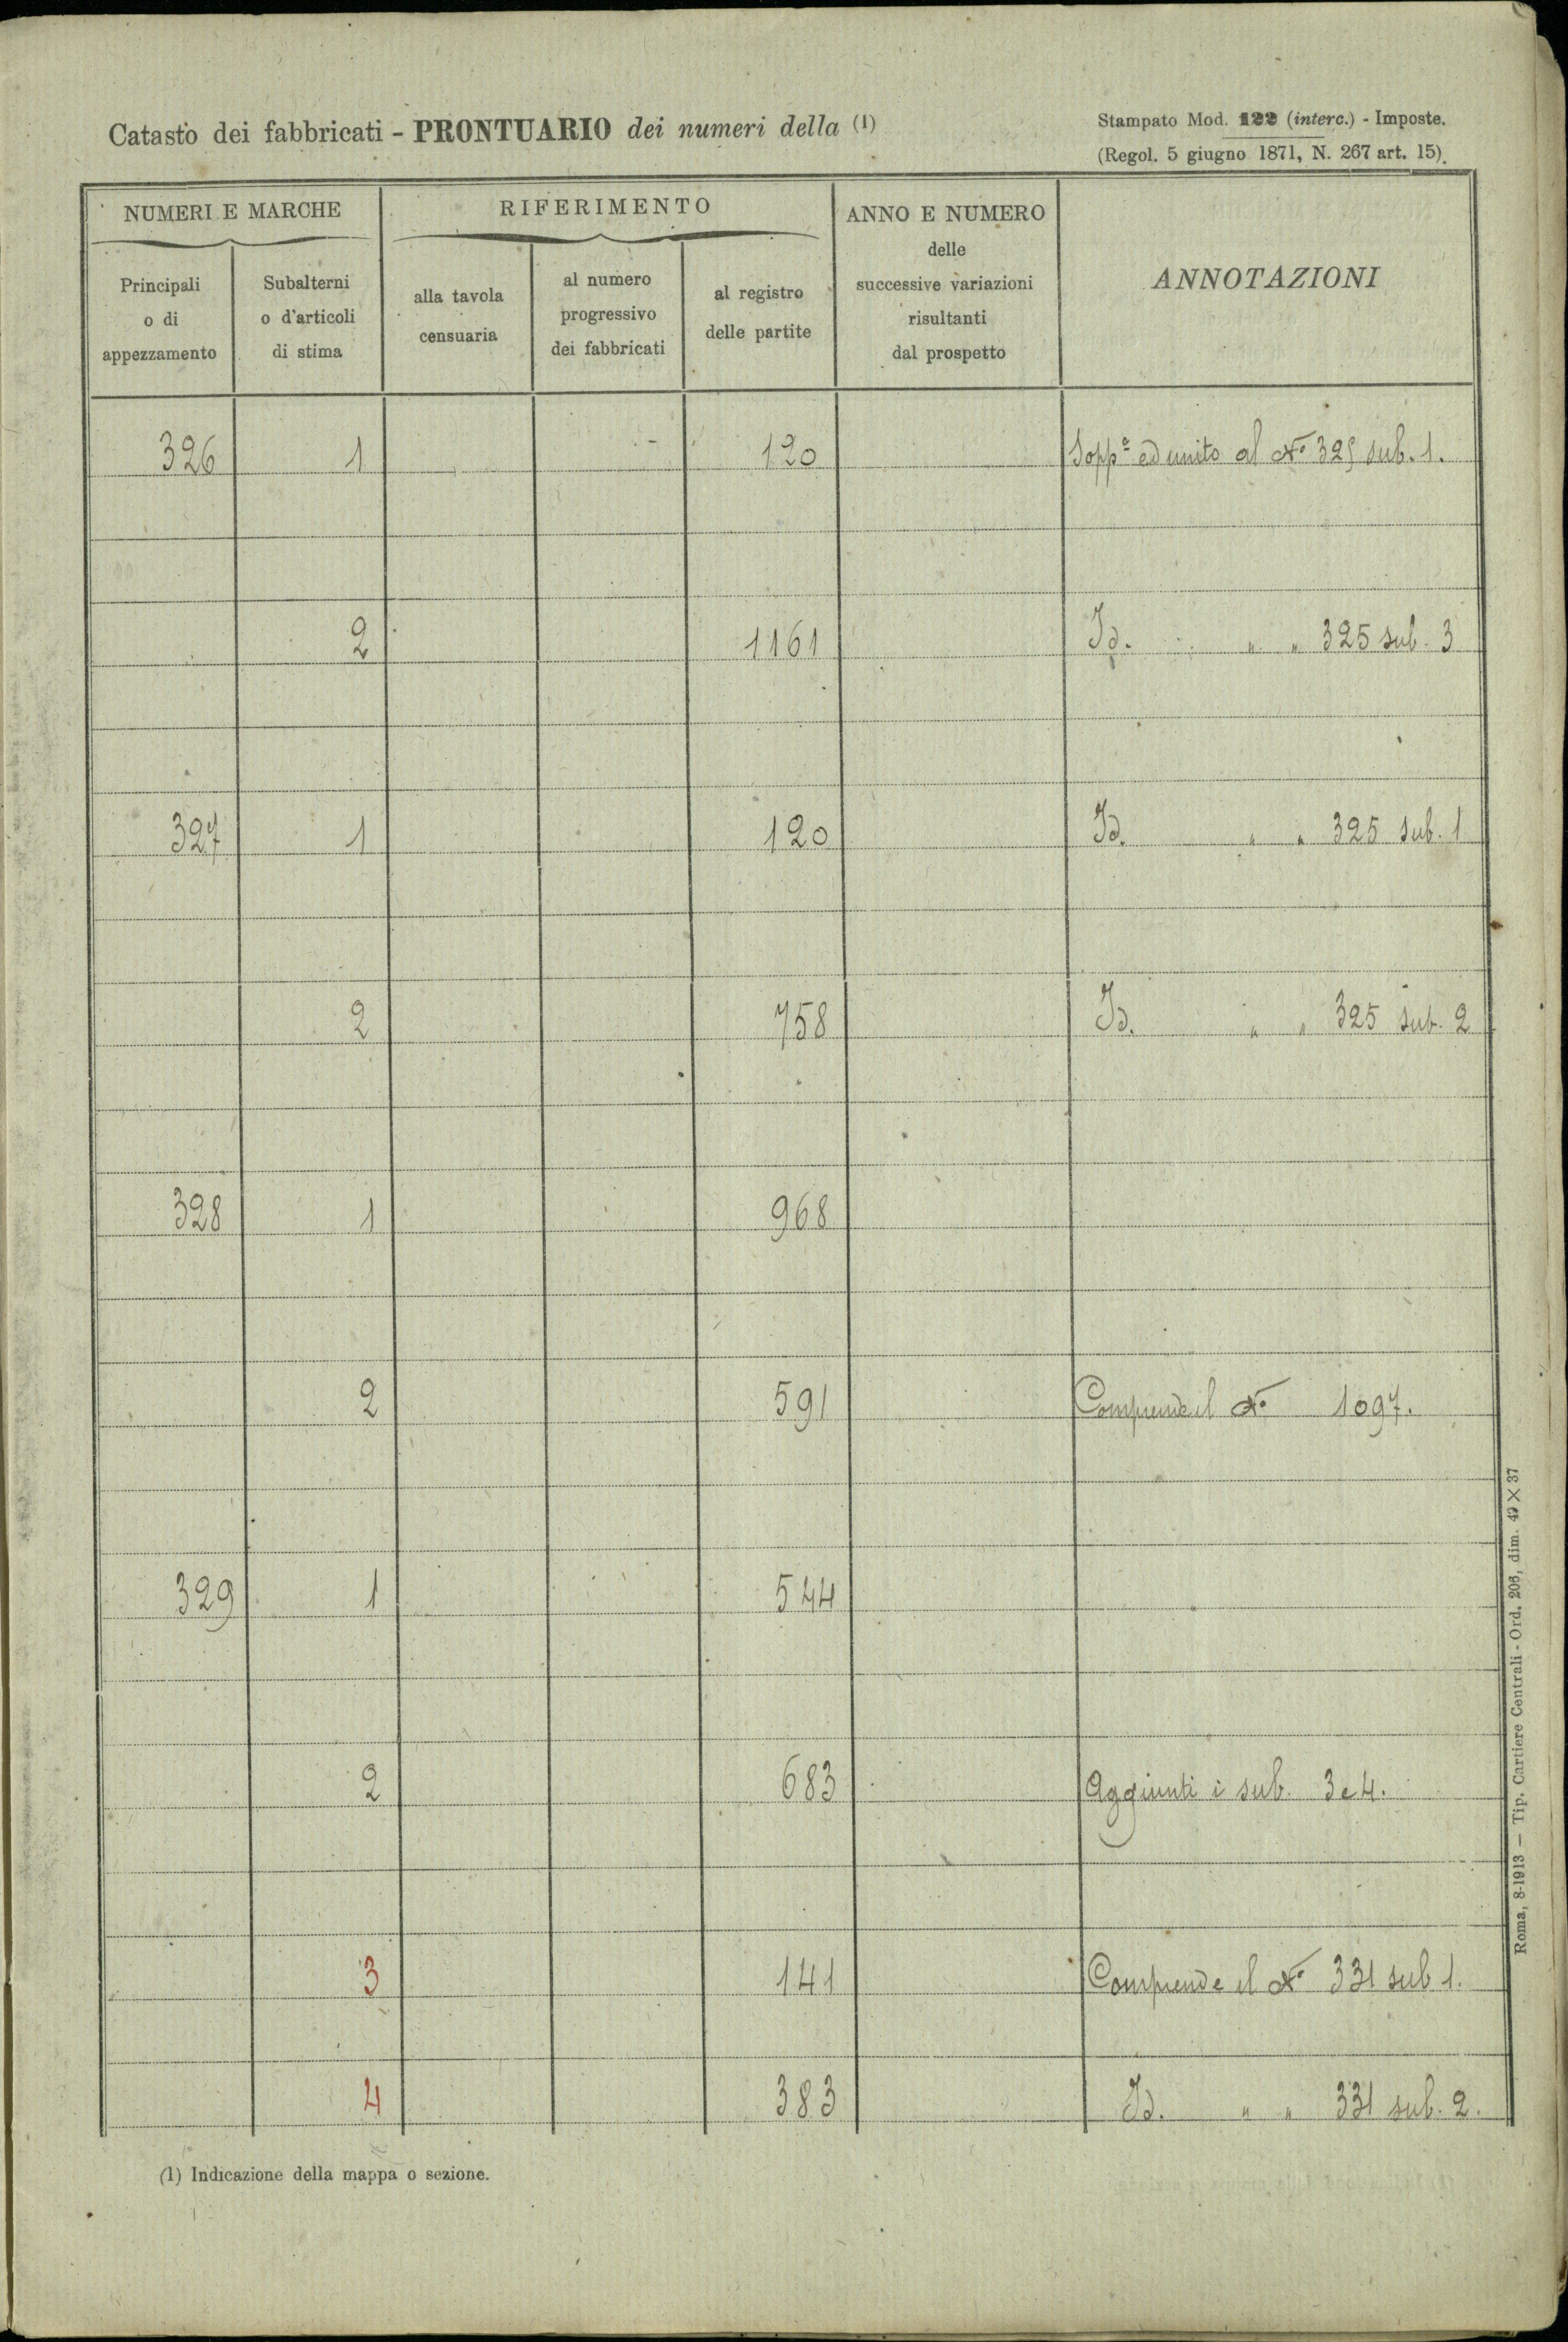 Catasto dei fabbricati - PRONTUARIO dei numeri della (1)
Stampato Mod. 122 (interc.) - Imposte.
(Regol. 5 giugno 1871, N. 267 art. 15).
NUMERI E MARCHE
RIFERIMENTO
ANNO E NUMERO
delle
successive variazioni
risultanti
dal prospetto
ANNOTAZIONI
Principali
o di
appezzamento
Subalterni
o d'articoli
di stima
alla tavola
censuaria
al numero
progressivo
dei fabbricati
al registro
delle partite
326 1 120 Sopp.º ed unito al Nº 325 sub. 1.
2 1161 Id. " " 325 sub. 3
327 1 120 Id. " " 325 sub. 1
2 758 Id. " " 325 sub. 2
328 1 968
2 591 Comprende il Nº 1097.
329 1 544
2 683 Aggiunti i sub. 3 e 4.
3 141 Comprende il Nº 331 sub 1.
4 383 Id. " " 331 sub. 2.
(1) Indicazione della mappa o sezione.
Roma, 8-1913 — Tip. Cartiere Centrali - Ord. 206, dim. 49 × 37